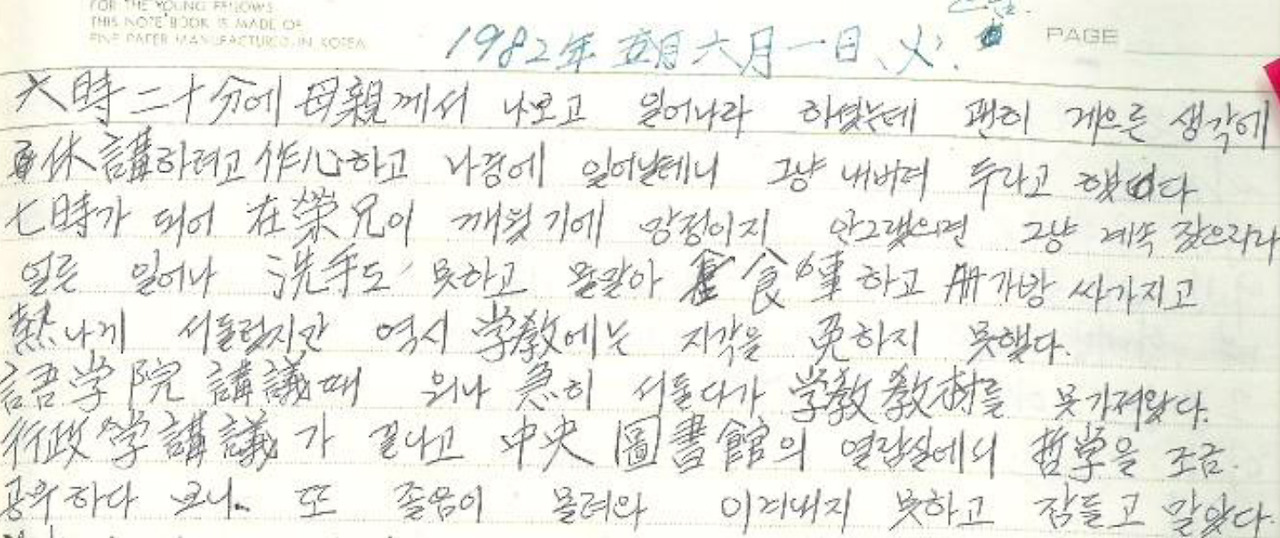 FOR THE YOUNG FELLOWS
THIS NOTE BOOK IS MADE OF
FINE PAPER MANUFACTURED IN KOREA
1982年 五月 六月一日、火. PAGE
六時二十分에 母親께서 나보고 일어나라 하였는데 괜히 게으른 생각에
休講하려고 作心하고 나중에 일어날테니 그냥 내버려 두라고 했었다
七時가 되어 在榮兄이 깨웠기에 망정이지 안그랬으면 그냥 계속 잤으리라
얼른 일어나 洗手도 못하고 물말아 食事하고 册가방 싸가지고
熱나게 서둘렀지만 역시 学教에는 지각을 免하지 못했다.
語学院 講議때 워나 急히 서둘다가 学教教材를 못가져왔다.
行政学講議가 끝나고 中央圖書館의 열람실에서 哲学을 조금
공부하다 보니 또 졸음이 몰려와 이겨내지 못하고 잠들고 말았다.